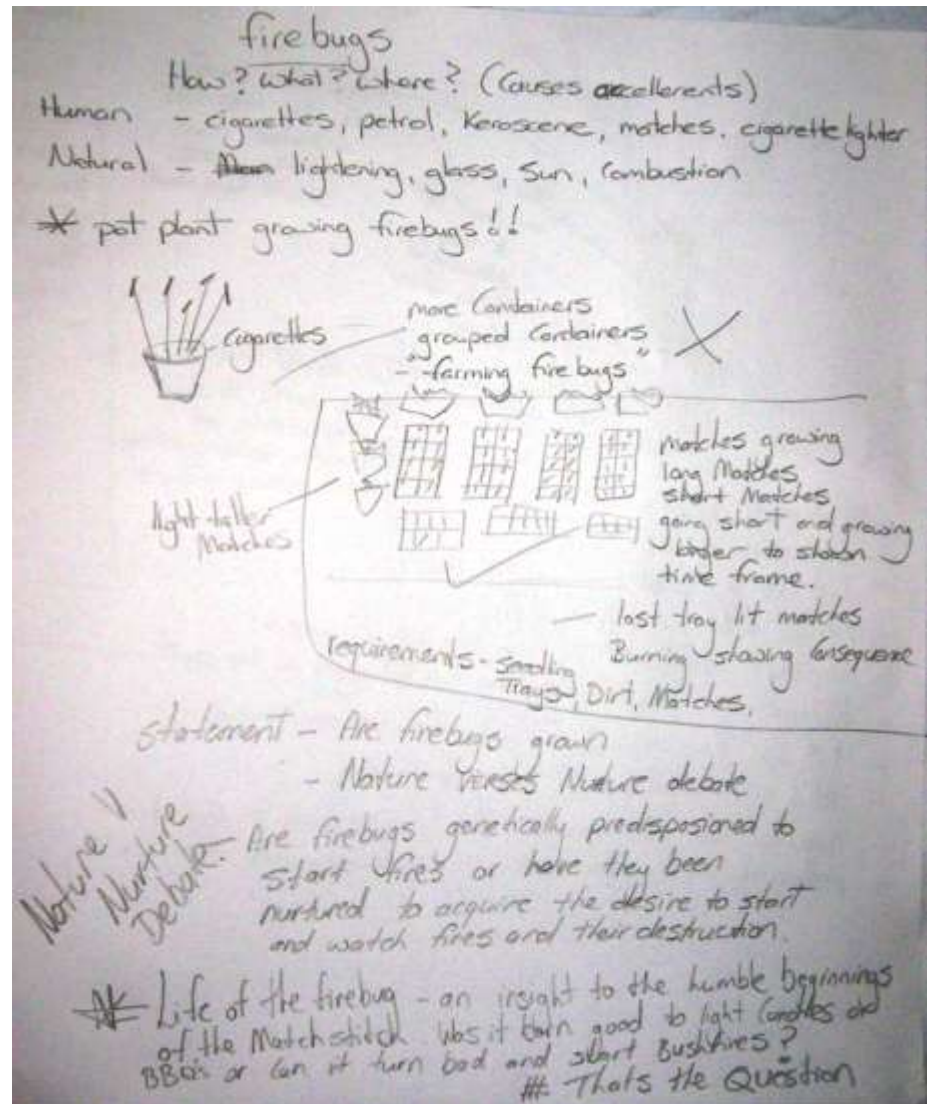 firebugs
How? what? where? (Causes accellerents)
Human - cigarettes, petrol, Keroscene, matches, cigarette lighter
Natural - lightening, glass, Sun, Combustion
* pot plant growing firebugs!!
cigarettes
more Containers
grouped Containers
- "farming firebugs"
matches growing
long Matches
short Matches
going short and growing
longer to
time frame.
light taller
Matches
- last tray lit matches
Burning showing Consequence
requirements - Seedling
Trays, Dirt, Matches,
Statement - Are firebugs grown
- Nature verses Nurture debate
Nature V
Nurture
Debate.
- Are firebugs genetically predisposioned to
start fires or have they been
nurtured to acquire the desire to start
and watch fires and their destruction.
* Life of the firebug - an insight to the humble beginnings
of the Matchstick. Was it born good to light Candles and
BBQ's or can it turn bad and start Bushfires?
# Thats the Question